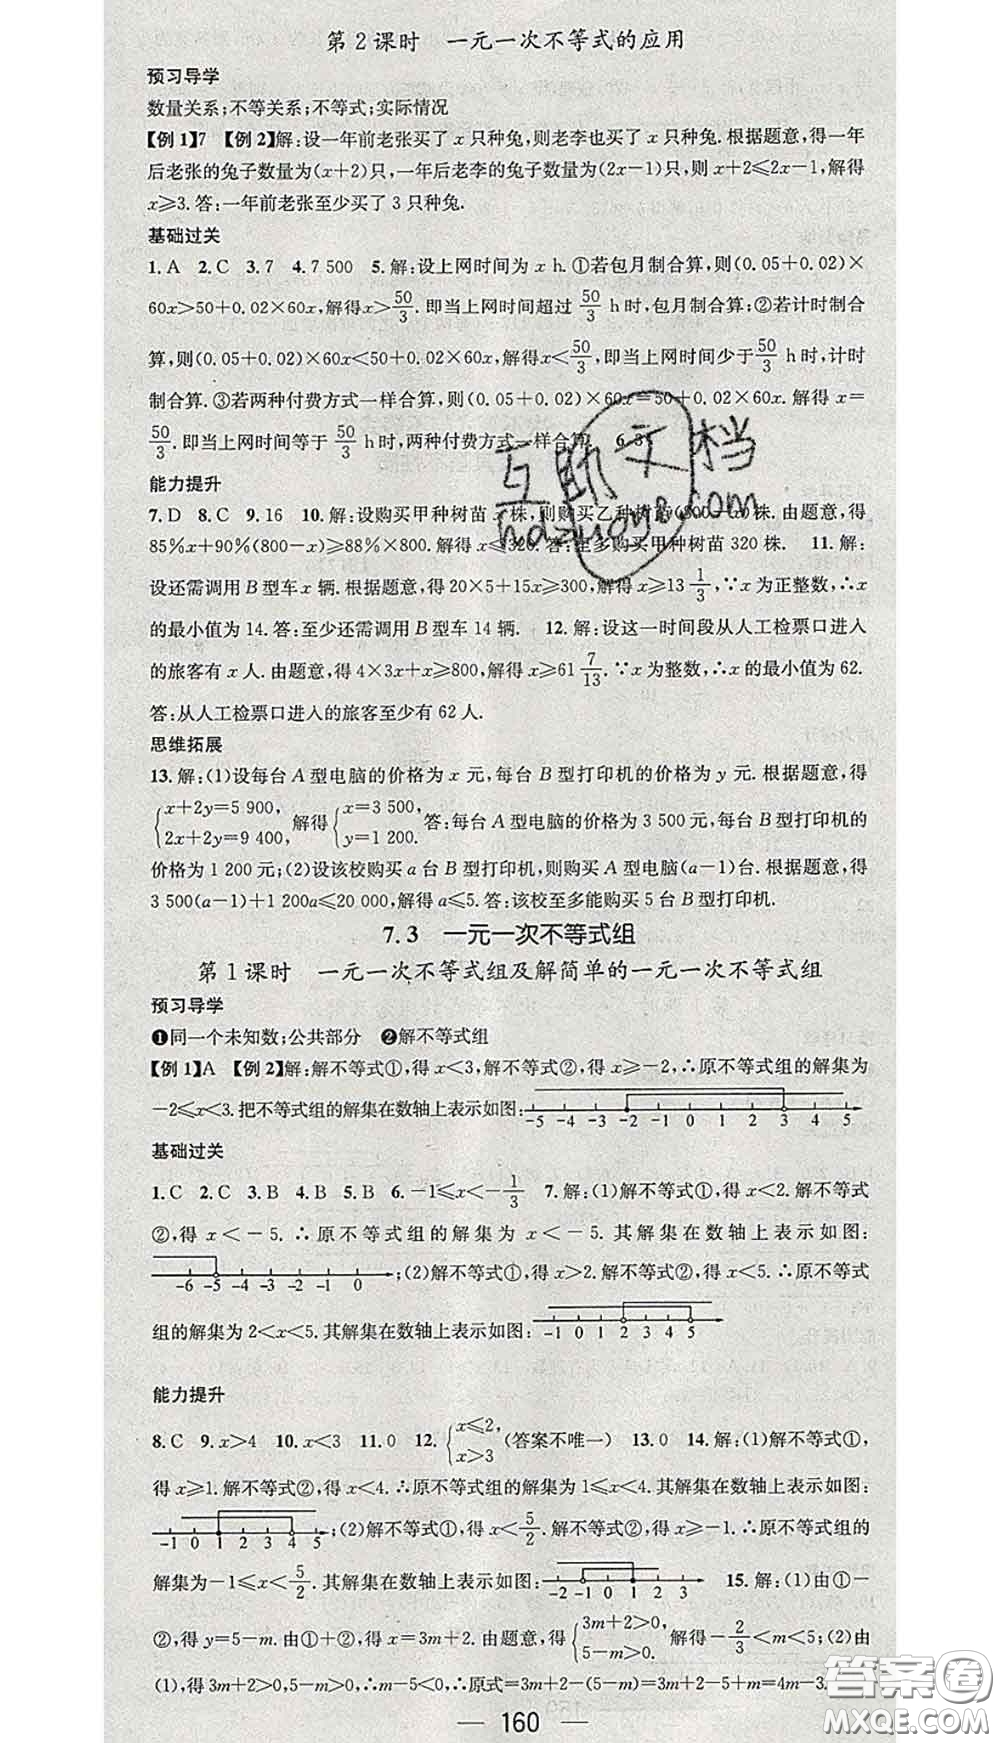 第2课时 一元一次不等式的应用
预习导学
数量关系;不等关系;不等式;实际情况
【例1】7 【例2】解:设一年前老张买了 x 只种兔,则老李也买了 x 只种兔.根据题意,得一年
后老张的兔子数量为(x+2)只,一年后老李的兔子数量为(2x-1)只,则 x+2≤2x-1,解得
x≥3.答:一年前老张至少买了 3 只种兔.
基础过关
1.A 2.C 3.7 4.7 500 5.解:设上网时间为 x h.①若包月制合算,则(0.05+0.02)×
60x>50+0.02×60x,解得x>50/3.即当上网时间超过 50/3 h时,包月制合算;②若计时制合
算,则(0.05+0.02)×60x<50+0.02×60x,解得x<50/3,即当上网时间少于50/3 h时,计时
制合算.③若两种付费方式一样合算,则(0.05+0.02)×60x=50+0.02×60x.解得 x=
50/3.即当上网时间等于 50/3 h时,两种付费方式一样合算. 6.3
能力提升
7.D 8.C 9.16 10.解:设购买甲种树苗 x 株,则购买乙种树苗(800-x)株.由题意,得
85%x+90%(800-x)≥88%×800.解得 x≤320.答:至多购买甲种树苗 320 株. 11.解:
设还需调用 B 型车 x 辆.根据题意,得 20×5+15x≥300,解得 x≥13 1/3,∵x 为正整数,∴x
的最小值为 14.答:至少还需调用 B 型车 14 辆. 12.解:设这一时间段从人工检票口进入
的旅客有 x 人.由题意,得 4×3x+x≥800,解得 x≥61 7/13.∵x 为整数,∴x 的最小值为 62.
答:从人工检票口进入的旅客至少有 62 人.
思维拓展
13.解:(1)设每台 A 型电脑的价格为 x 元,每台 B 型打印机的价格为 y 元.根据题意,得
{x+2y=5 900, 2x+2y=9 400, 解得{x=3 500, y=1 200. 答:每台 A 型电脑的价格为 3 500 元,每台 B 型打印机的
价格为 1 200 元;(2)设该校购买 a 台 B 型打印机,则购买 A 型电脑(a-1)台.根据题意,得
3 500(a-1)+1 200a≤20 000,解得 a≤5.答:该校至多能购买 5 台 B 型打印机.
7.3 一元一次不等式组
第1课时 一元一次不等式组及解简单的一元一次不等式组
预习导学
❶同一个未知数;公共部分 ❷解不等式组
【例1】A 【例2】解:解不等式①,得 x<3,解不等式②,得 x≥-2,∴原不等式组的解集为
-2≤x<3.把不等式组的解集在数轴上表示如图: -5 -4 -3 -2 -1 0 1 2 3 4 5
基础过关
1.C 2.C 3.B 4.B 5.B 6.-1≤x<-1/3 7.解:(1)解不等式①,得 x<2.解不等式
②,得 x<-5.∴原不等式组的解集为 x<-5.其解集在数轴上表示如图:
-6 -5 -4 -3 -2 -1 0 ;(2)解不等式①,得 x>2.解不等式②,得 x<5.∴原不等式
组的解集为 2<x<5.其解集在数轴上表示如图: -1 0 1 2 3 4 5
能力提升
8.C 9.x>4 10.x<3 11.0 12.{x≤2, x>3 (答案不唯一) 13.0 14.解:(1)解不等式①,
得 x≥1.解不等式②,得 x<4.∴原不等式组的解集为 1≤x<4.其解集在数轴上表示如图:
-1 0 1 2 3 4 5 ;(2)解不等式①,得 x<5/2.解不等式②,得 x≥-1.∴原不等式组的
解集为-1≤x<5/2.其解集在数轴上表示如图: -2 -1 0 1 2 3 15.解:(1)由①-
②,得 y=5-m.由①+②,得 x=3m+2.由题意,得{3m+2>0, 5-m>0. 解得-2/3<m<5;(2)由
(1),得 3m+2>0,5-m>0,∴m-5<0,∴原式=3m+2-(5-m)=3m+2-5+m=4m-3.
— 160 —
互助文档
hdzuoye.com
答案圈
MXQE.COM